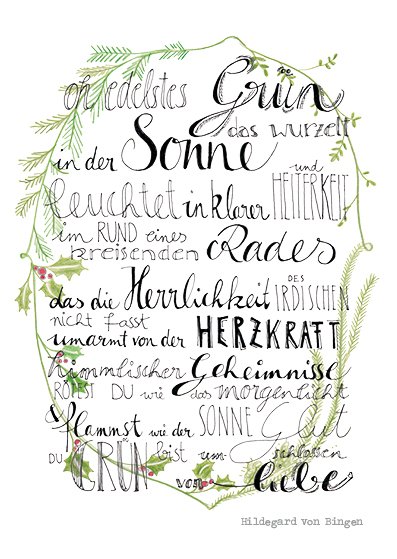 oh edelstes Grün
das wurzelt
in der Sonne
und
leuchtet in klarer HEITERKEIT
im RUND eines
kreisenden Rades
das die Herrlichkeit DES IRDISCHEN
nicht fasst
umarmt von der HERZKRAFT
himmlischer Geheimnisse
RÖTEST DU wie das morgenlicht
& flammst wie der SONNE Glut
DU GRÜN bist um-schlossen
von liebe
Hildegard von Bingen